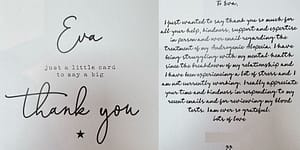 Eva
just a little card
to say a big
thank you
To Eva,
I just wanted to say thank you so much for
all your help, kindness, support and expertise
in person and over email regarding the
treatment of my Androgenic Alopecia. I have
being struggling with my mental health
since the breakdown of my relationship and
I have been experiencing a lot of stress and I
am not currently working. I really appreciate
your time and kindness in responding to my
recent emails and for reviewing my blood
tests. I am over so grateful.
Lots of love